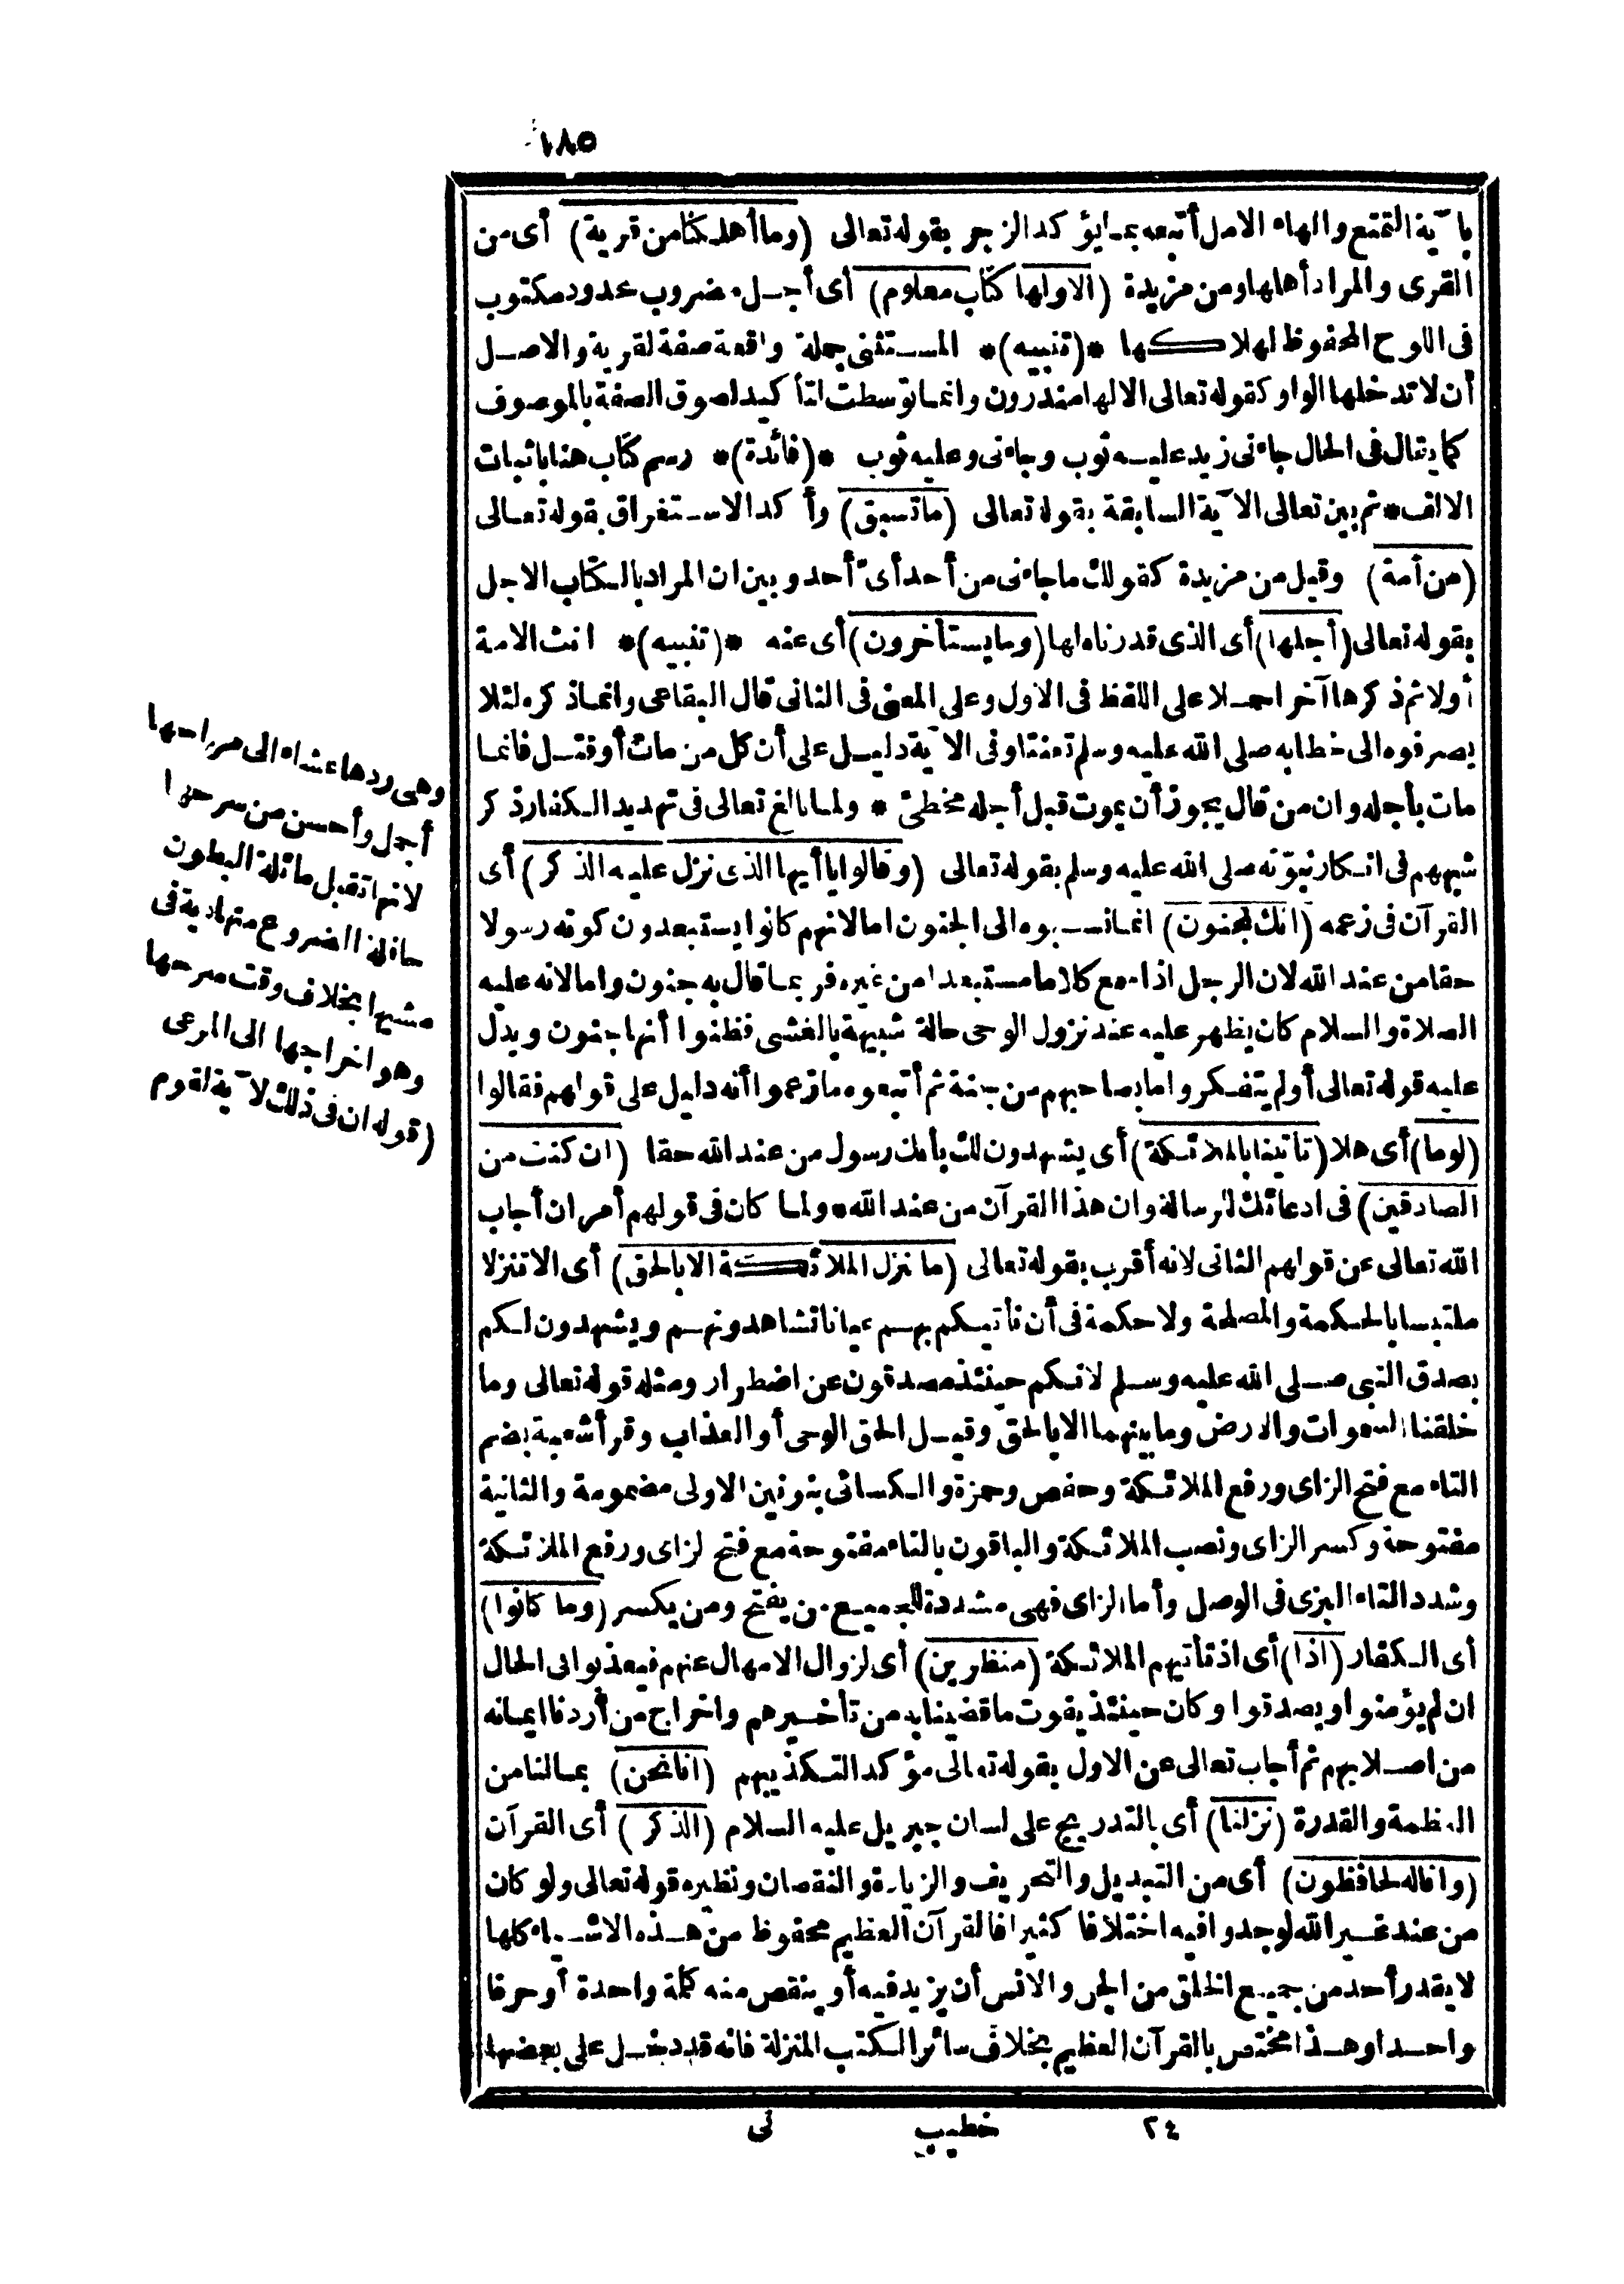 ١٨٥
بآية التمتع والهاه الامل أتبعه بما يؤكد الزجر بقوله تعالى (وما أهلكنا من قرية) أى من
القرى والمراد أهلها ومن مزيدة (الا ولها كتاب معلوم) أى أجل مضروب محدود مكتوب
فى اللوح المحفوظ لهلاكها *(تنبيه)* المستثنى جملة واقعة صفة لقرية والاصل
أن لا تدخلها الواو كقوله تعالى الا لها منذرون وانما توسطت لتأكيد لصوق الصفة بالموصوف
كما يقال فى الحال جاءنى زيد عليه ثوب وجاءنى وعليه ثوب *(فائدة)* رسم كتاب هنا باثبات
الالف * ثم بين تعالى الآية السابقة بقوله تعالى (ما تسبق) وأكد الاستغراق بقوله تعالى
(من أمة) وقيل من مزيدة كقولك ما جاءنى من أحد أى أحد وبين ان المراد بالكتاب الاجل
بقوله تعالى (أجلها) أى الذى قدرناه لها (وما يستأخرون) أى عنه *(تنبيه)* انث الامة
أولا ثم ذكرها آخرا حملا على اللفظ فى الاول وعلى المعنى فى الثانى قال البقاعى وانما ذكره لئلا
يصرفوه الى خطابه صلى الله عليه وسلم تعنتا وفى الآية دليل على أن كل من مات أو قتل فانما
مات بأجله وان من قال يجوز أن يموت قبل أجله مخطئ * ولما بالغ تعالى فى تهديد الكفار ذكر
شبههم فى انكار نبوّته صلى الله عليه وسلم بقوله تعالى (وقالوا يا أيها الذى نزل عليه الذكر) أى
القرآن فى زعمه (انك لمجنون) انما نسبوه الى الجنون اما لانهم كانوا يستبعدون كونه رسولا
حقا من عند الله لان الرجل اذا سمع كلاما مستبعدا من غيره فربما قال به جنون واما لانه عليه
الصلاة والسلام كان يظهر عليه عند نزول الوحى حالة شبيهة بالغشى فظنوا أنها جنون ويدل
عليه قوله تعالى أولم يتفكروا ما بصاحبهم من جنة ثم أتبعوه ما زعموا أنه دليل على قولهم فقالوا
(لوما) أى هلا (تأتينا بالملائكة) أى يشهدون لك بأنك رسول من عند الله حقا (ان كنت من
الصادقين) فى ادعائك للرسالة وان هذا القرآن من عند الله * ولما كان فى قولهم أمران أجاب
الله تعالى عن قولهم الثانى لانه أقرب بقوله تعالى (ما ننزل الملائكة الا بالحق) أى الا تنزلا
ملتبسا بالحكمة والمصلحة ولا حكمة فى أن تأتيكم بهم عيانا تشاهدونهم ويشهدون لكم
بصدق النبى صلى الله عليه وسلم لانكم حينئذ مصدقون عن اضطرار ومثله قوله تعالى وما
خلقنا السموات والارض وما بينهما الا بالحق وقيل الحق الوحى أو العذاب وقرأ شعبة بضم
التاء مع فتح الزاى ورفع الملائكة وحفص وحمزة والكسائى بنونين الاولى مضمومة والثانية
مفتوحة وكسر الزاى ونصب الملائكة والباقون بالتاء مفتوحة مع فتح الزاى ورفع الملائكة
وشدد التاء البزى فى الوصل وأما الزاى فهى مشددة للجميع من يفتح ومن يكسر (وما كانوا)
أى الكفار (اذا) أى اذ تأتيهم الملائكة (منظرين) أى لزوال الامهال عنهم فيعذبوا فى الحال
ان لم يؤمنوا ويصدقوا وكان حينئذ يفوت ما قضينا به من تأخيرهم واخراج من أردنا ايمانه
من اصلابهم ثم أجاب تعالى عن الاول بقوله تعالى مؤكدا لتكذيبهم (انا نحن) بما لنا من
العظمة والقدرة (نزلنا) أى بالتدريج على لسان جبريل عليه السلام (الذكر) أى القرآن
(وانا له لحافظون) أى من التبديل والتحريف والزيادة والنقصان ونظيره قوله تعالى ولو كان
من عند غير الله لوجدوا فيه اختلافا كثيرا فالقرآن العظيم محفوظ من هذه الاشياء كلها
لا يقدر أحد من جميع الخلق من الجن والانس أن يزيد فيه أو ينقص منه كلمة واحدة أو حرفا
واحدا وهذا مختص بالقرآن العظيم بخلاف سائر الكتب المنزلة فانه قد دخل على بعضها
وهى ردها عشاء الى مراحها
أجمل وأحسن من سرحها
لانها تقبل مائلة البطون
حافلة الضروع متهادية فى
مشيها بخلاف وقت سرحها
وهو اخراجها الى المرعى
(قوله ان فى ذلك لآية لقوم
٢٤ خطيب نى